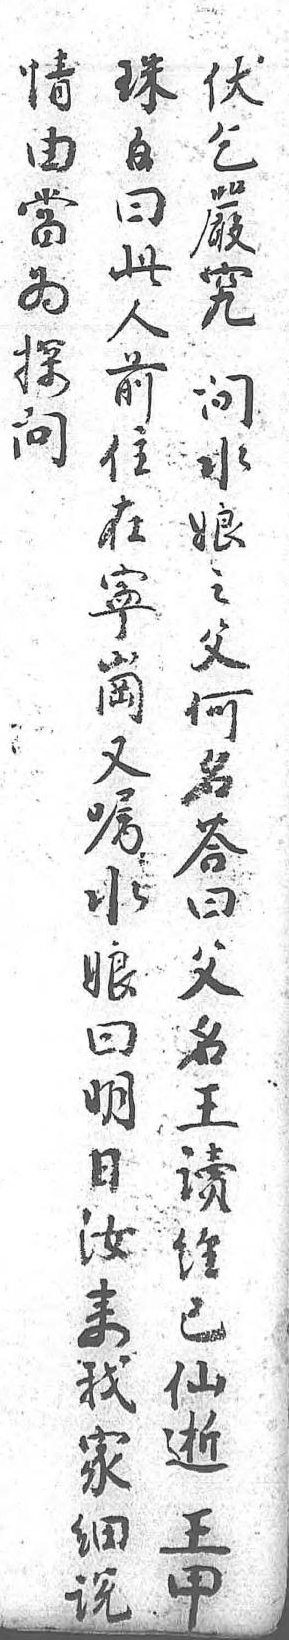 伏乞嚴究问水娘之父何名荅曰父名王读经已仙逝王甲
珠白曰此人前住在寕崗又嘱水娘曰明日汝来我家细说
情由當为探问